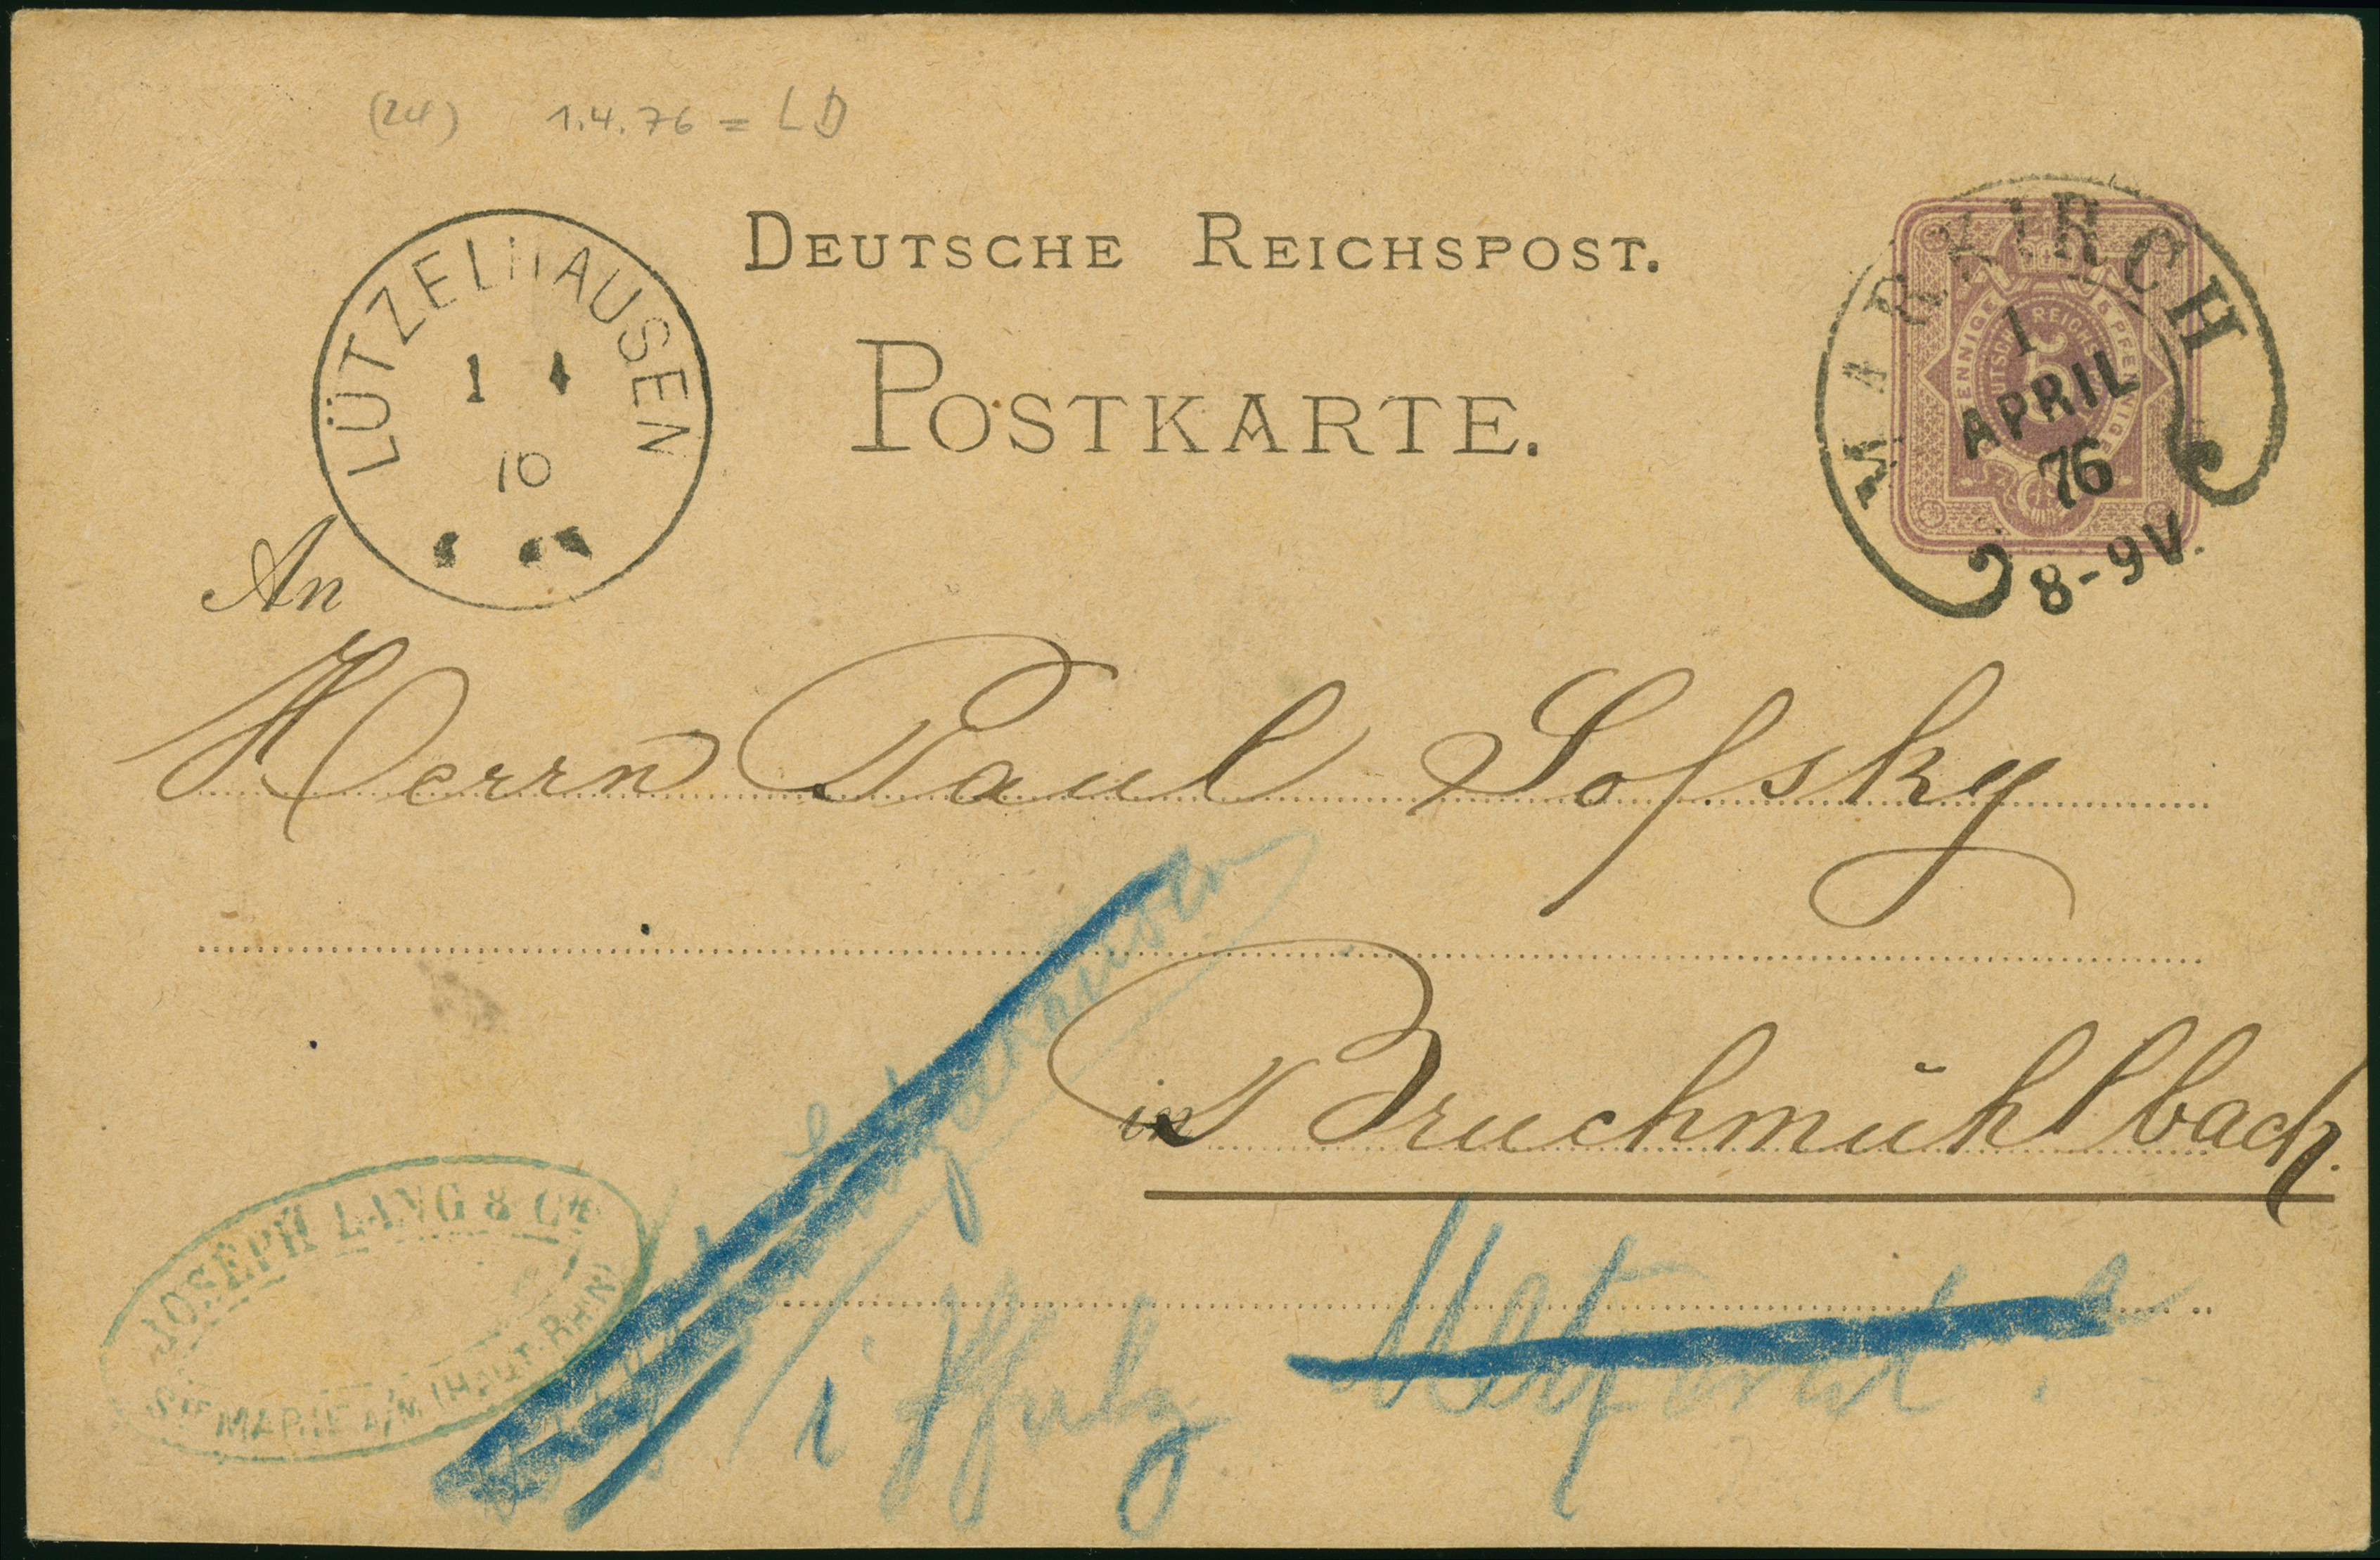 (24) 1.4.76 = LD
DEUTSCHE REICHSPOST.
POSTKARTE.
LÜTZELHAUSEN
1 4
10
MARKIRCH
1
APRIL
76
8-9V.
5
An
Herrn Paul Sofsky
in Bruchmühlbach.
i/Pfalz
JOSEPH LANG & Cie
Ste MARIE A/M (HAUT-RHIN)